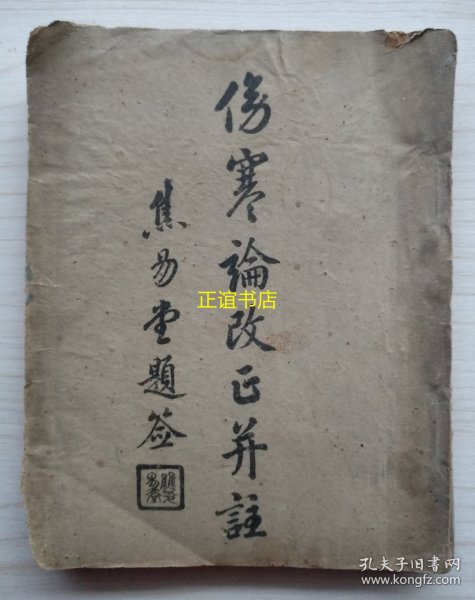 傷寒論改正并註
焦易堂題簽
正谊书店
孔夫子旧书网